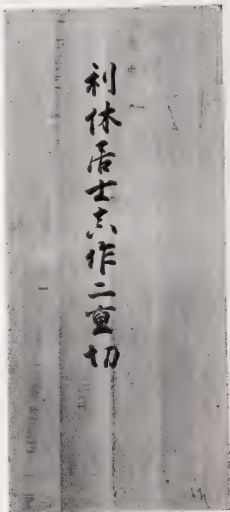 利休居士真作二重切